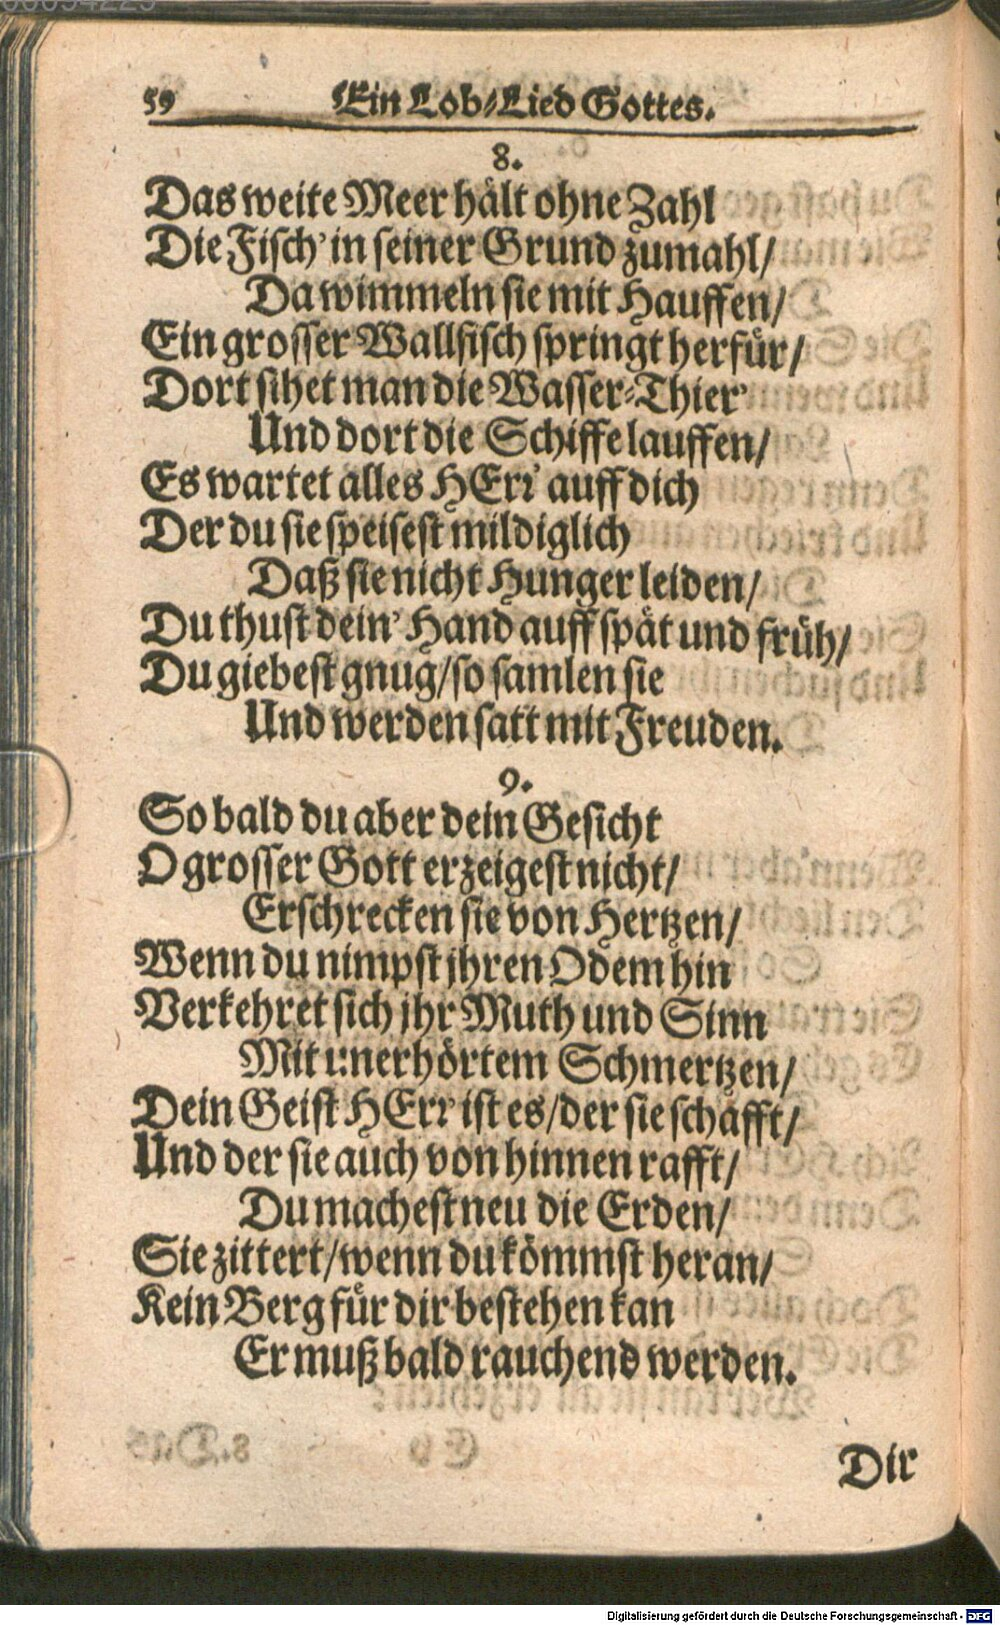 59 Ein Lob-Lied Gottes.
8.
Das weite Meer hält ohne Zahl
Die Fisch' in seiner Grund zumahl/
Da wimmeln sie mit Hauffen/
Ein grosser Wallfisch springt herfür/
Dort sihet man die Wasser-Thier'
Und dort die Schiffe lauffen/
Es wartet alles HErr' auff dich
Der du sie speisest mildiglich
Daß sie nicht Hunger leiden/
Du thust dein' Hand auff spät und früh/
Du giebest gnug/ so samlen sie
Und werden satt mit Freuden.
9.
So bald du aber dein Gesicht
O grosser Gott erzeigest nicht/
Erschrecken sie von Hertzen/
Wenn du nimpst jhren Odem hin
Verkehret sich jhr Muth und Sinn
Mit unerhörtem Schmertzen/
Dein Geist HErr' ist es/ der sie schafft/
Und der sie auch von hinnen rafft/
Du machest neu die Erden/
Sie zittert/ wenn du kömmst heran/
Kein Berg für dir bestehen kan
Er muß bald rauchend werden.
Dir
Digitalisierung gefördert durch die Deutsche Forschungsgemeinschaft - DFG